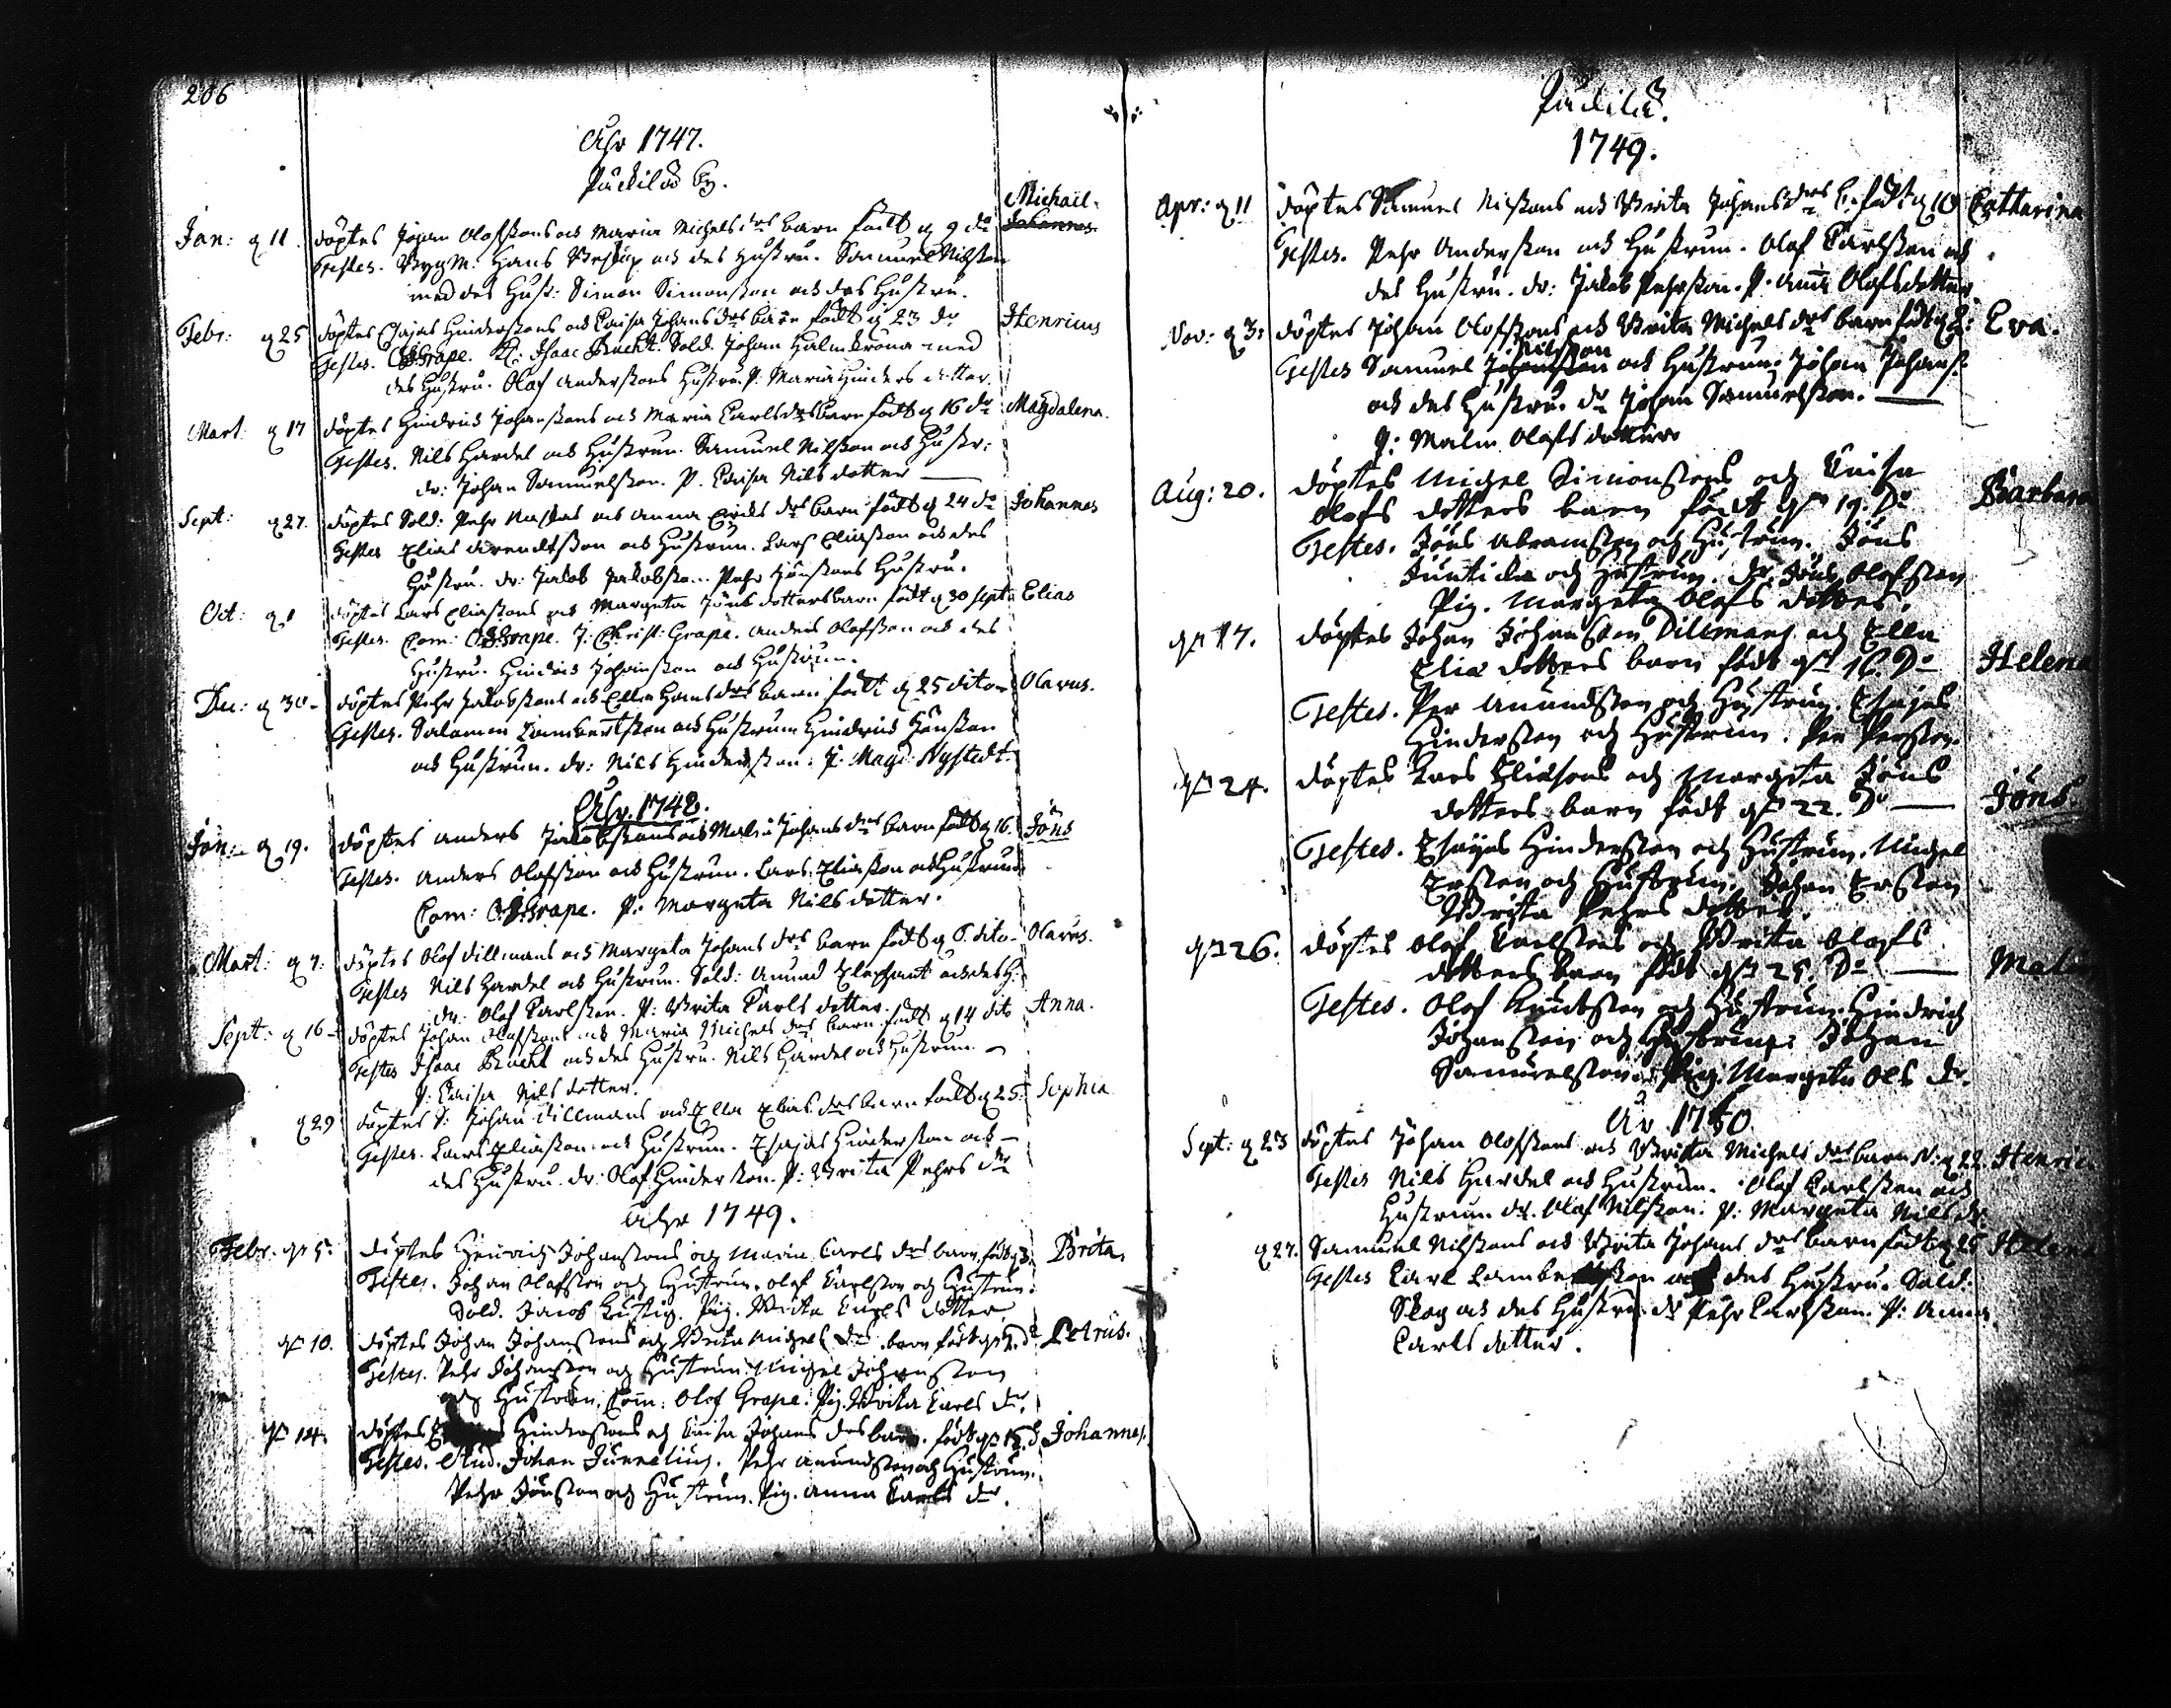 206
Åhr 1747.
Päckilä by.
Michaël.
Jan: d 11. döptes Johan Olofssons och Maria Michelsdrs barn födt d 9 do Johannes
Testes. Bygm: Hans Biskop och des hustru. Samuel Nilsson
med des Hust: Simon Simonsson och des Hustru.
Febr: d 25 döptes Esajas Hinderssons och Caisa Johans drs barn födt d 23 do Henricus
Testes. Grape. Kl: Isaac Bucht. Sold. Johan Halmkrona med
des hustru. Olof Anderssons hustru. P. Maria Hinders dotter.
Mart: d 17 döptes Hindrich Johanssons och Maria Carls drs barn födt d 16 do Magdalena.
Testes. Nils Hardel och Hustrun. Samuel Nilsson och Hustr:
dr: Johan Samuelsson. P. Caisa Nils dotter
Sept: d 27. döptes Sold: Pehr och Anna drs barn födt d 24 do Johannes
Testes Elias Arendtsson och Hustrun. Lars Eliasson och des
Hustru. dr: Jakob Jakobsson. Pehr Jönssons Hustru.
Oct: d 1 döptes Lars Eliassons och Margeta Jöns dotters barn födt d 30 Sept: Elias
Testes. Com: Grape. J: Christ: Grape. Anders Olofsson och des
Hustru. Hindrich Johansson och Hustrun.
Dec: d 30 döptes Pehr Jakobssons och Ella Hans drs barn födt d 25 dito Olavus.
Testes. Salomon Lambertsson och Hustrun Hindrich Jönsson
och Hustrun. dr: Nils Hindersson. P: Magd: Nystedt.
Åhr. 1748.
Jan: d 19. döptes Anders Jakobssons och Malin Johans drs barn födt d 16. Jöns
Testes. Anders Olofsson och Hustrun. Lars Eliasson och Hustrun
Com: Grape. P: Margeta Nils dotter.
Mart: d 7: döptes Olof Dillmans och Margeta Johans drs barn födt d 6. dito Olavus.
Testes Nils Hardel och Hustrun. Sold: Amund Elephant och des H:
dr: Olof Carlsson. P: Brita Carls dotter.
Sept: d 16 döptes Johan Olofssons och Maria Michels drs barn födt d 14 dito Anna.
Testes Isaac Bucht och des Hustru. Nils Hardel och Hustrun
P: Caisa Nils dotter.
d 29 döptes S: Johan Dillmans och Ella Elias drs barn födt d 25: Sophia
Testes. Lars Eliasson och Hustrun. Esajas Hindersson och
des Hustru. dr: Olof Hindersson. P: Brita Pehrs dr
Åhr 1749.
Febr: d 5: döptes Henrich Johanssons och Maria Carls drs barn födt d 3. Brita.
Testes. Johan Olofsson och Hustrun. Olof Carlsson och Hustrun.
Sold. Jacob Lustig. Pig. Brita Engels dotter
d 10. döptes Johan Johanssons och Brita Michels drs barn födt d 9. do Petrus.
Testes. Pehr Johansson och Hustrun Michel Johansson
och Hustrun. Com: Olof Grape. Pig. Brita Carls dr.
d 14. döptes Hinderssons och Caisa Johans drs barn. födt d 12. d. Johannes.
Testes. Stud. Johan Junnelius. Pehr Amundsson och Hustrun.
Pehr Jönsson och Hustrun. Pig. Anna Carls dr.
Päckilä.
1749.
Apr: d 11 döptes Samuel Nilssons och Brita Johans drs b. födt d 10 Catharina
Testes. Pehr Andersson och Hustrun. Olof Carlsson och
des Hustru. dr: Jakob Pehrsson. P. Anna Olofsdotter
Nov: d 3: döptes Johan Olofssons och Brita Michels drs barn födt d 2: Eva.
Nilsson
Testes Samuel Johansson och Hustrun. Johan Johanss:
och des Hustru. dr Johan Samuelsson.
P: Malin Olofs dotter
Aug: 20. döptes Michel Simonssons och Caisa
Olofs dotters barn födt d 19. Do Barbara
Testes. Jöns Abramsson och Hustrun. Jöns
Juntila och Hustrun. dr. Jöns Olofsson
Pig. Margeta Olofs dotter.
d 17. döptes Johan Johansson Dillmans och Ella
Eliæ dotters barn födt d 16. Do Helena
Testes. Per Amundsson och Hustrun. Esajas
Hindersson och Hustrun. Per Persson.
d 24. döptes Lars Eliassons och Margeta Jöns
dotters barn födt d 22. Do Jöns.
Testes. Esajas Hindersson och Hustrun. Michel
Ersson och Hustrun. Johan Ersson
Brita Pehrs dotter.
d 26. döptes Olof Carlssons och Brita Olofs
dotters barn födt d 25. Do Malin
Testes. Olof Knutsson och Hustrun. Hindrich
Johansson och Hustrun. Johan
Samuelsson Pig. Margeta Ols dr.
År 1750.
Sept: d 23 döptes Johan Olofssons och Brita Michels drs barn N: d 22 Henric
Testes Nils Hardel och Hustrun. Olof Carlsson och
Hustrun dr. Olof Nilsson. P: Margeta Nils dr.
d 27. Samuel Nilssons och Brita Johans drs barn födt d 25 Helena
Testes Carl Lambertsson och des Hustru. Sold:
Skog och des Hustru dr Pehr Carlsson. P: Anna
Carls dotter.